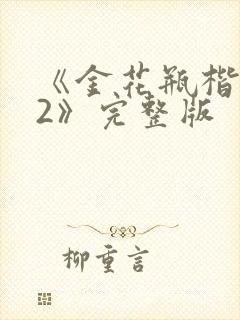 《金花瓶楷
2》完整版
柳重言